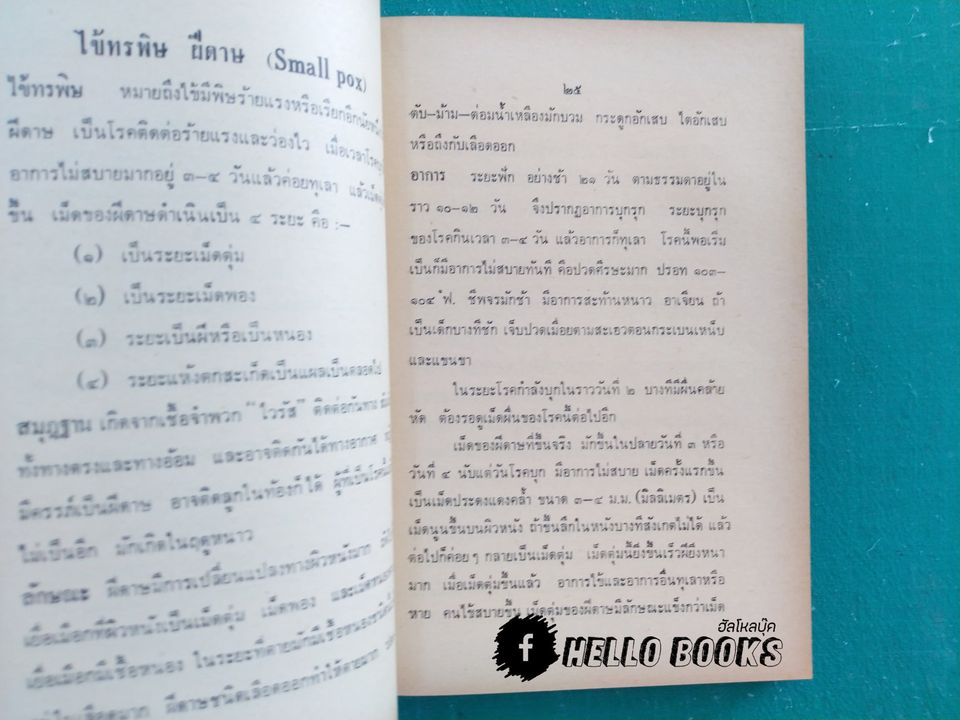 ไข้ทรพิษ ฝีดาษ (Small pox)
ไข้ทรพิษ หมายถึงไข้มีพิษร้ายแรงหรือเรียกอีกนัยหนึ่ง
ฝีดาษ เป็นโรคติดต่อร้ายแรงและว่องไว เมื่อเวลาโรค
อาการไม่สบายมากอยู่ ๓–๔ วันแล้วค่อยทุเลา แล้วเม็ด
ขึ้น เม็ดของฝีดาษดำเนินเป็น ๔ ระยะ คือ :–
(๑) เป็นระยะเม็ดตุ่ม
(๒) เป็นระยะเม็ดพอง
(๓) ระยะเป็นฝีหรือเป็นหนอง
(๔) ระยะแห้งตกสะเก็ดเป็นแผลเป็นตลอดไป
สมุฏฐาน เกิดจากเชื้อจำพวก "ไวรัส" ติดต่อกันทาง
ทั้งทางตรงและทางอ้อม และอาจติดกันได้ทางอากาศ
มีครรภ์เป็นฝีดาษ อาจติดลูกในท้องก็ได้ ผู้ที่เป็นโรค
ไม่เป็นอีก มักเกิดในฤดูหนาว
ลักษณะ ฝีดาษมีการเปลี่ยนแปลงทางผิวหนังมาก
เยื่อเมือกที่ผิวหนังเป็นเม็ดตุ่ม เม็ดพอง และเม็ด
เยื่อเมือกมีเชื้อหนอง ในระยะที่ตายมักมีเชื้อหนอง
ฝีดาษชนิดเลือดออกทำให้ตายมาก
๒๕
ตับ–ม้าม–ต่อมน้ำเหลืองมักบวม กระดูกอักเสบ ไตอักเสบ
หรือถึงกับเลือดออก
อาการ ระยะฟัก อย่างช้า ๒๑ วัน ตามธรรมดาอยู่ใน
ราว ๑๐–๑๒ วัน จึงปรากฏอาการบุกรุก ระยะบุกรุก
ของโรคกินเวลา ๓–๔ วัน แล้วอาการก็ทุเลา โรคนี้พอเริ่ม
เป็นก็มีอาการไม่สบายทันที คือปวดศีรษะมาก ปรอท ๑๐๓–
๑๐๔ ํฟ. ชีพจรมักช้า มีอาการสะท้านหนาว อาเจียน ถ้า
เป็นเด็กบางทีชัก เจ็บปวดเมื่อยตามสะเอวตอนกระเบนเหน็บ
และแขนขา
ในระยะโรคกำลังบุกในราววันที่ ๒ บางทีมีผื่นคล้าย
หัด ต้องรอดูเม็ดผื่นของโรคนี้ต่อไปอีก
เม็ดของฝีดาษที่ขึ้นจริง มักขึ้นในปลายวันที่ ๓ หรือ
วันที่ ๔ นับแต่วันโรคบุก มีอาการไม่สบาย เม็ดครั้งแรกขึ้น
เป็นเม็ดประดงแดงคล้ำ ขนาด ๓–๔ ม.ม. (มิลลิเมตร) เป็น
เม็ดนูนขึ้นบนผิวหนัง ถ้าขึ้นลึกในหนังบางทีสังเกตไม่ได้ แล้ว
ต่อไปก็ค่อยๆ กลายเป็นเม็ดตุ่ม เม็ดตุ่มนี้ยิ่งขึ้นเร็วฝียิ่งหนา
มาก เมื่อเม็ดตุ่มขึ้นแล้ว อาการไข้และอาการอื่นทุเลาหรือ
หาย คนไข้สบายขึ้น เม็ดตุ่มของฝีดาษมีลักษณะแข็งกว่าเม็ด
ฮัลโหลบุ๊ค
f HELLO BOOKS